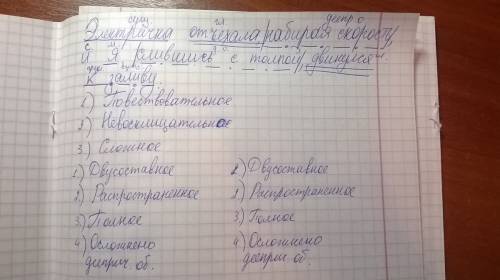 сущ. гл. деепр. о.
Электричка отъехала, набирая скорость,
и я, слившись с толпой, двинулся
к заливу.
1) Повествовательное
2) Невосклицательное
3) Сложное
1) Двусоставное 1) Двусоставное
2) Распространенное 2) Распространенное
3) Полное 3) Полное
4) Осложнено 4) Осложнено
дееприч. об. дееприч. об.